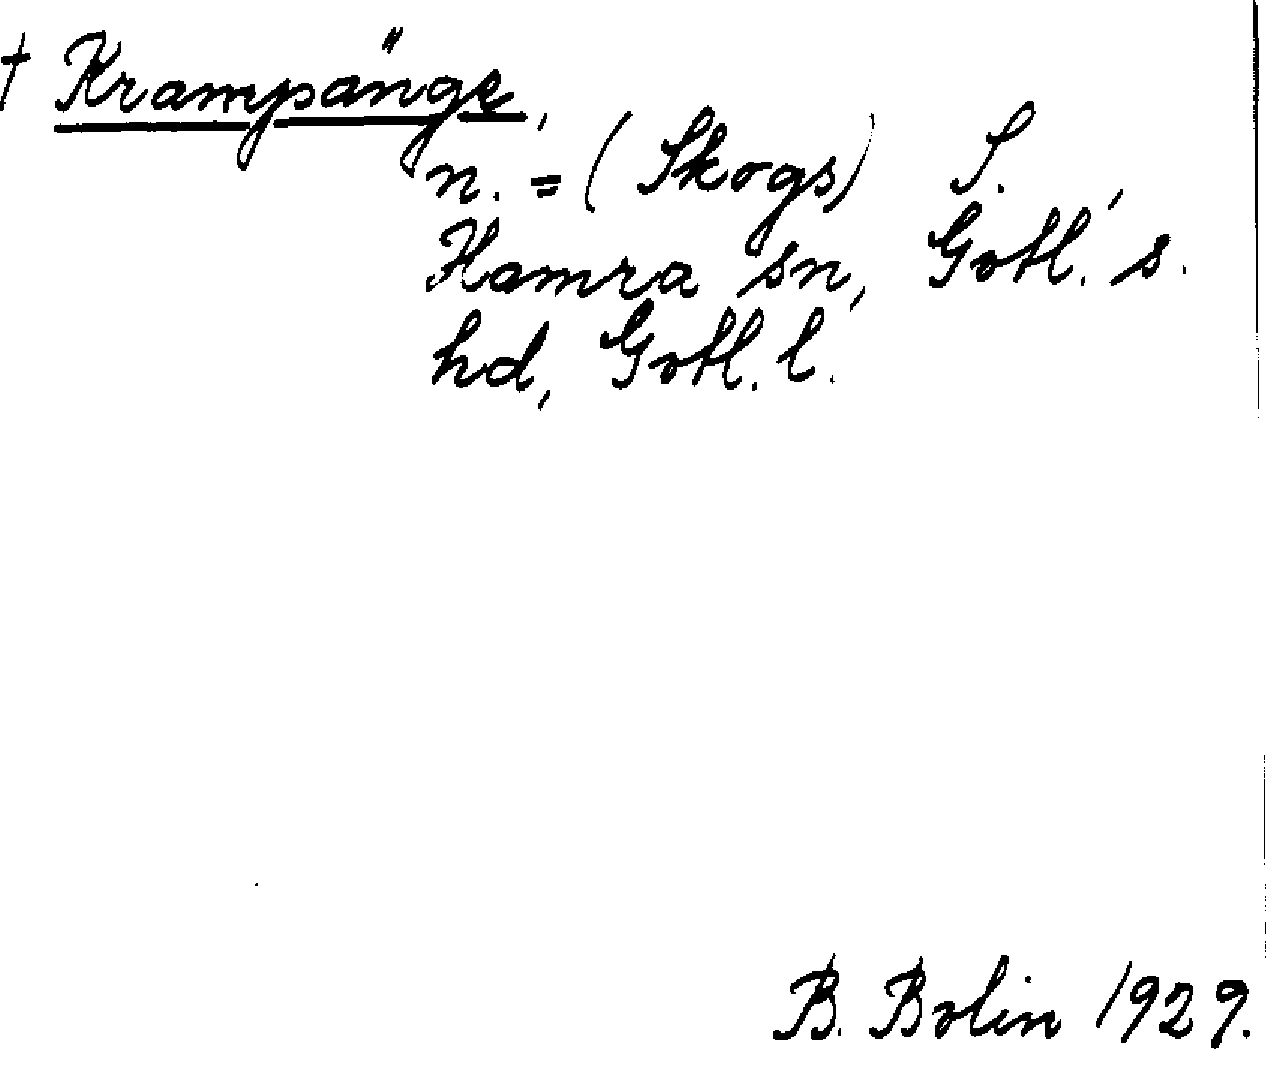 † Krampänge,
n. = (Skogs) S.
Hamra sn, Gotl. s.
hd, Gotl. l.
B. Bolin 1929.